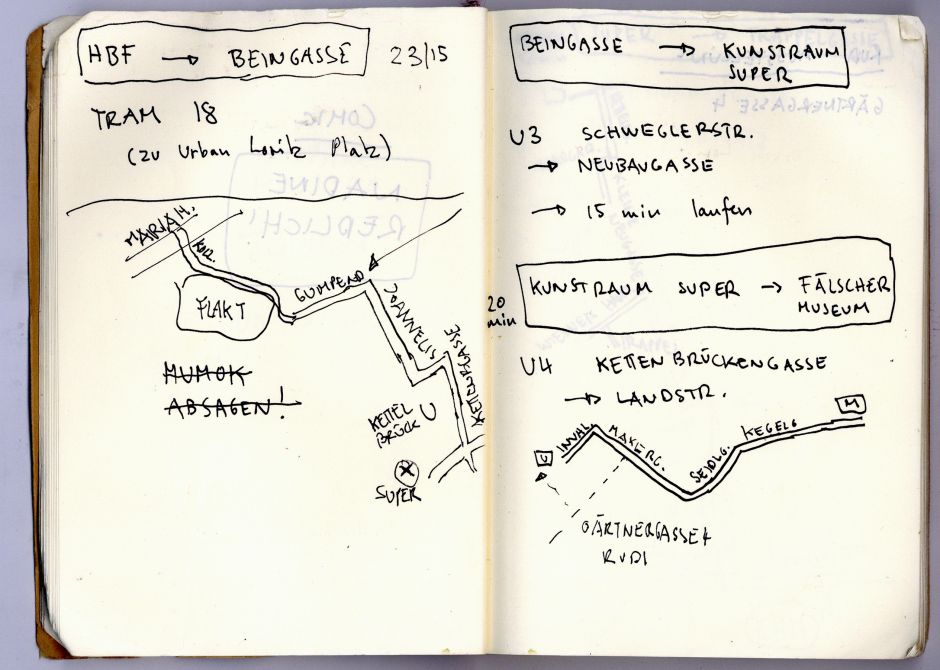 HBF → BEINGASSE 23/15
TRAM 18
(zu Urban Loritz Platz)
MARIAH.
KIR.
FLAKT
GUMPEND
JOANNELIS
KETTENBRGASSE
MUMOK
ABSAGEN!
KETTEL
BRÜCK U
SUPER
BEINGASSE → KUNSTRAUM
SUPER
U3 SCHWEGLERSTR.
→ NEUBAUGASSE
→ 15 min laufen
KUNSTRAUM SUPER → FÄLSCHER
MUSEUM
20
min
U4 KETTENBRÜCKENGASSE
→ LANDSTR.
U
INVAL.
MARKERG.
SEIDLG.
KEGELG
M
GÄRTNERGASSE 4
RUDI
COMIC
NADINE
REDLICH!
GÄRTNERGASSE 4